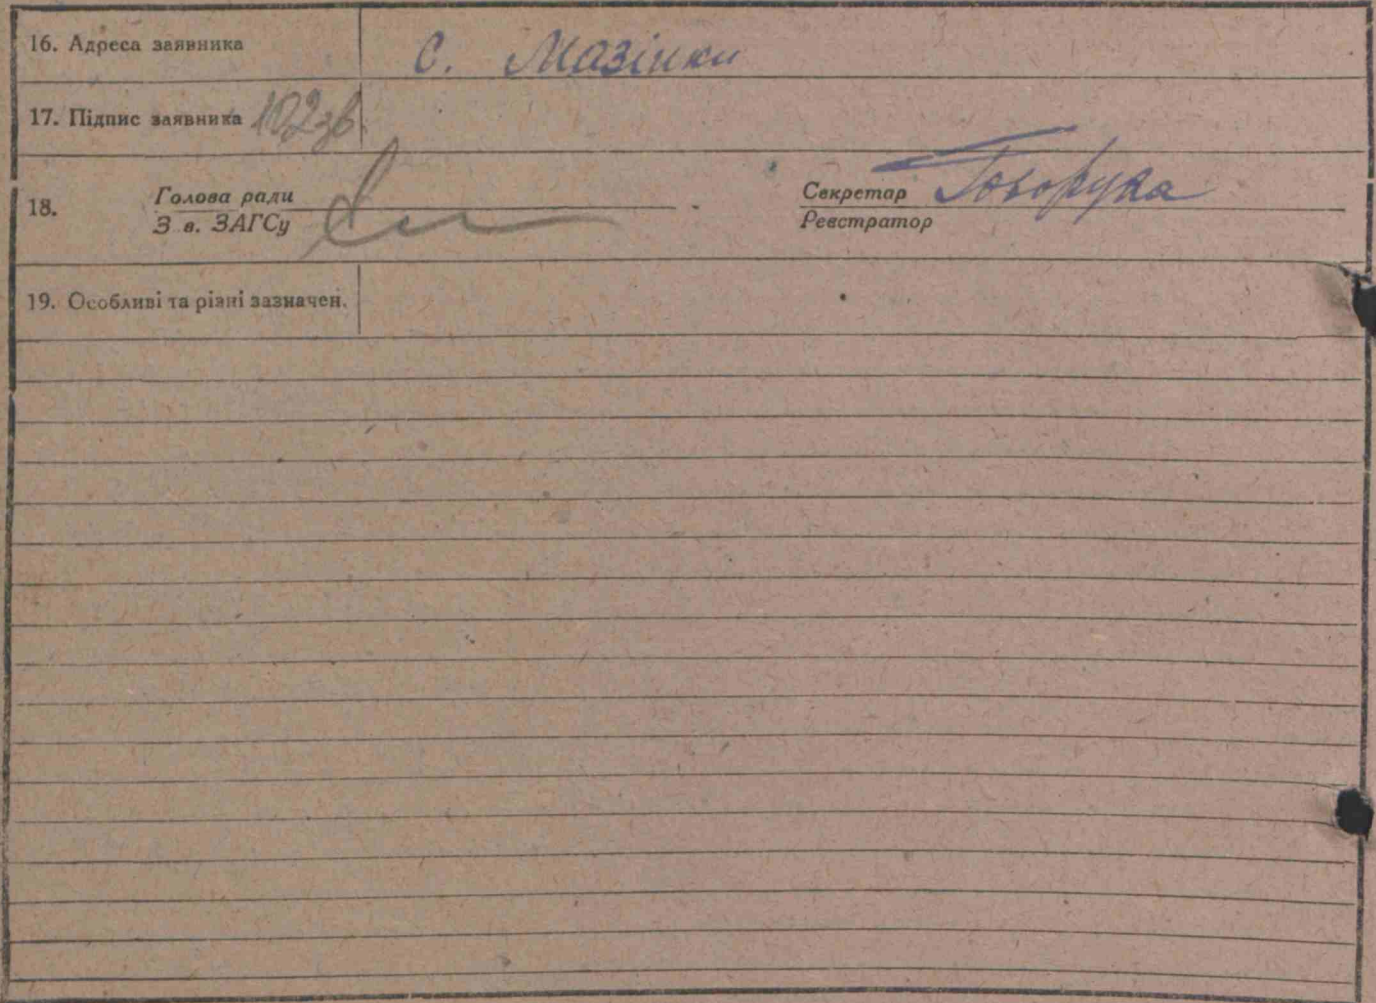 16. Адреса заявника с. Мазінки
17. Підпис заявника 102зв
18. Голова ради Секретар
З в. ЗАГСу Реєстратор
19. Особливі та різні зазначен.